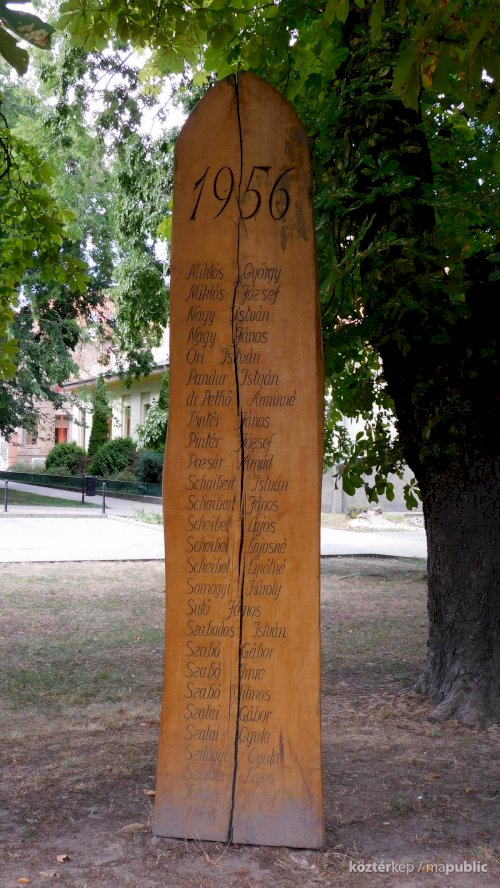 1956
Miklós György
Miklós József
Nagy István
Nagy János
Őri István
Pandur István
dr. Petkó Arminné
Pintér János
Pintér József
Pozsár Árpád
Schaibert István
Schaibert János
Scheibel Lajos
Scheibel Lajosné
Scheibel
Somogyi Károly
Sütő János
Szabados István
Szabó Gábor
Szabó Imre
Szabó Vilmos
Szalai Gábor
Szalai Gyula
Szilágyi Gyula
Lajos
köztérkép / mapublic